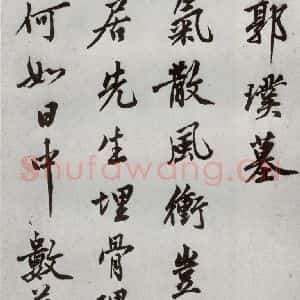 郭璞墓
氣散風衝豈
居先生埋骨理
何如日中數
Shufawang.cn